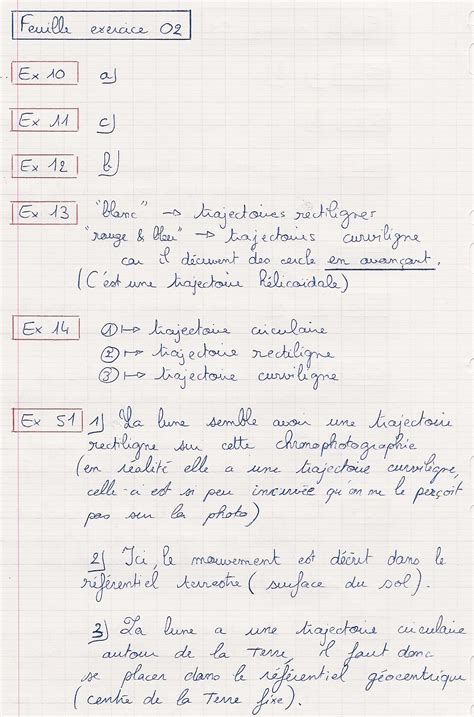 Feuille exercice 02
Ex 10 a)
Ex 11 c)
Ex 12 b)
Ex 13 "blanc" → trajectoires rectilignes
"rouge & bleu" → trajectoires curviligne
car il décrivent des cercle en avançant.
(C'est une trajectoire hélicoïdale)
Ex 14 ① ↦ trajectoire circulaire
② ↦ trajectoire rectiligne
③ ↦ trajectoire curviligne
Ex 51 1) La lune semble avoir une trajectoire
rectiligne sur cette chronophotographie
(en réalité elle a une trajectoire curviligne,
celle-ci est si peu incurvée qu'on ne le perçoit
pas sur la photo)
2) Ici, le mouvement est décrit dans le
référentiel terrestre (surface du sol).
3) La lune a une trajectoire circulaire
autour de la Terre, il faut donc
se placer dans le référentiel géocentrique
(centre de la Terre fixe).